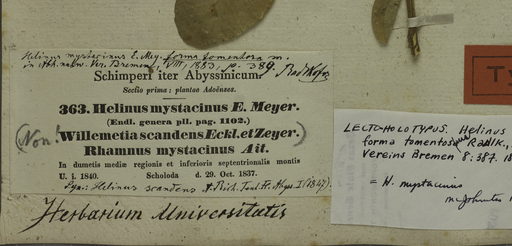 Helinus mystacinus E. Mey. forma tomentosa m.
in Abh. naturw. Ver. Bremen, VIII, 1883, p. 389. Radlkofer
Schimperi iter Abyssinicum.
Sectio prima: plantae Adoënses.
363. Helinus mystacinus E. Meyer.
(Endl. genera pll. pag. 1102.)
(Non! Willemetia scandens Eckl. et Zeyer.)
Rhamnus mystacinus Ait.
In dumetis mediae regionis et inferioris septentrionalis montis
U. i. 1840. Scholoda d. 29. Oct. 1837.
Syn. Helinus scandens A. Rich. Tent. Fl. Abyss. I (1847).
Herbarium Universitatis
TY
LECTO-HOLOTYPUS. Helinus
forma tomentosus Radlk.,
Vereins Bremen 8: 387. 18
= H. mystacinus